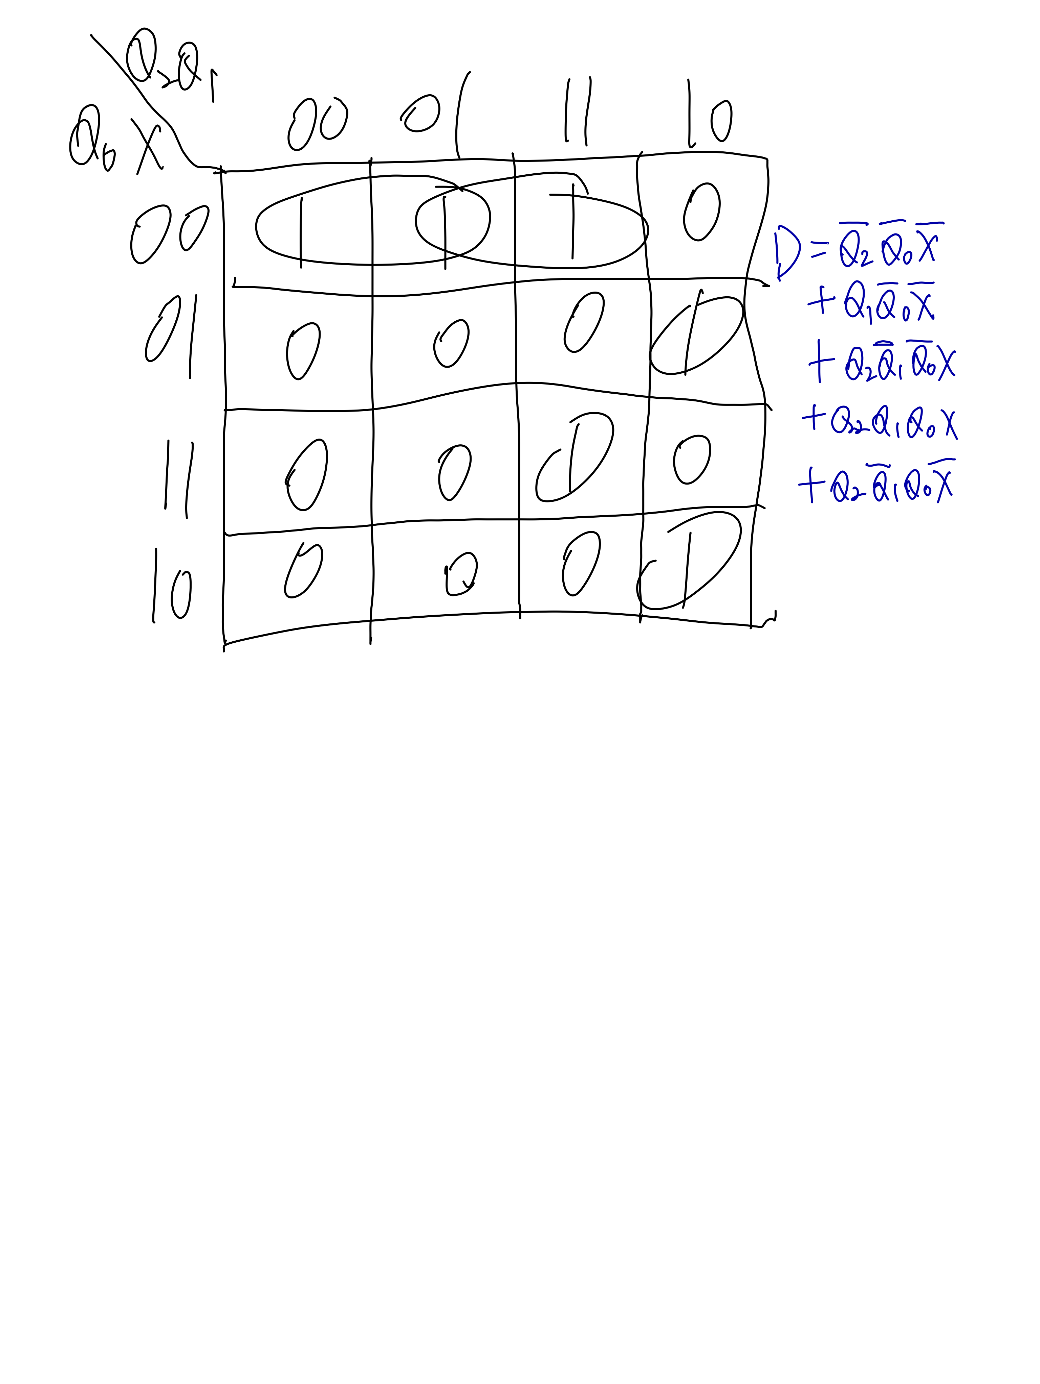 Q₂Q₁
Q₀X
00 01 11 10
00 1 1 1 0
01 0 0 0 1
11 0 0 1 0
10 0 0 0 1
D = Q̅₂ Q̅₀ X̅
+ Q₁ Q̅₀ X̅
+ Q₂ Q̅₁ Q̅₀ X
+ Q₂ Q₁ Q₀ X
+ Q₂ Q̅₁ Q₀ X̅